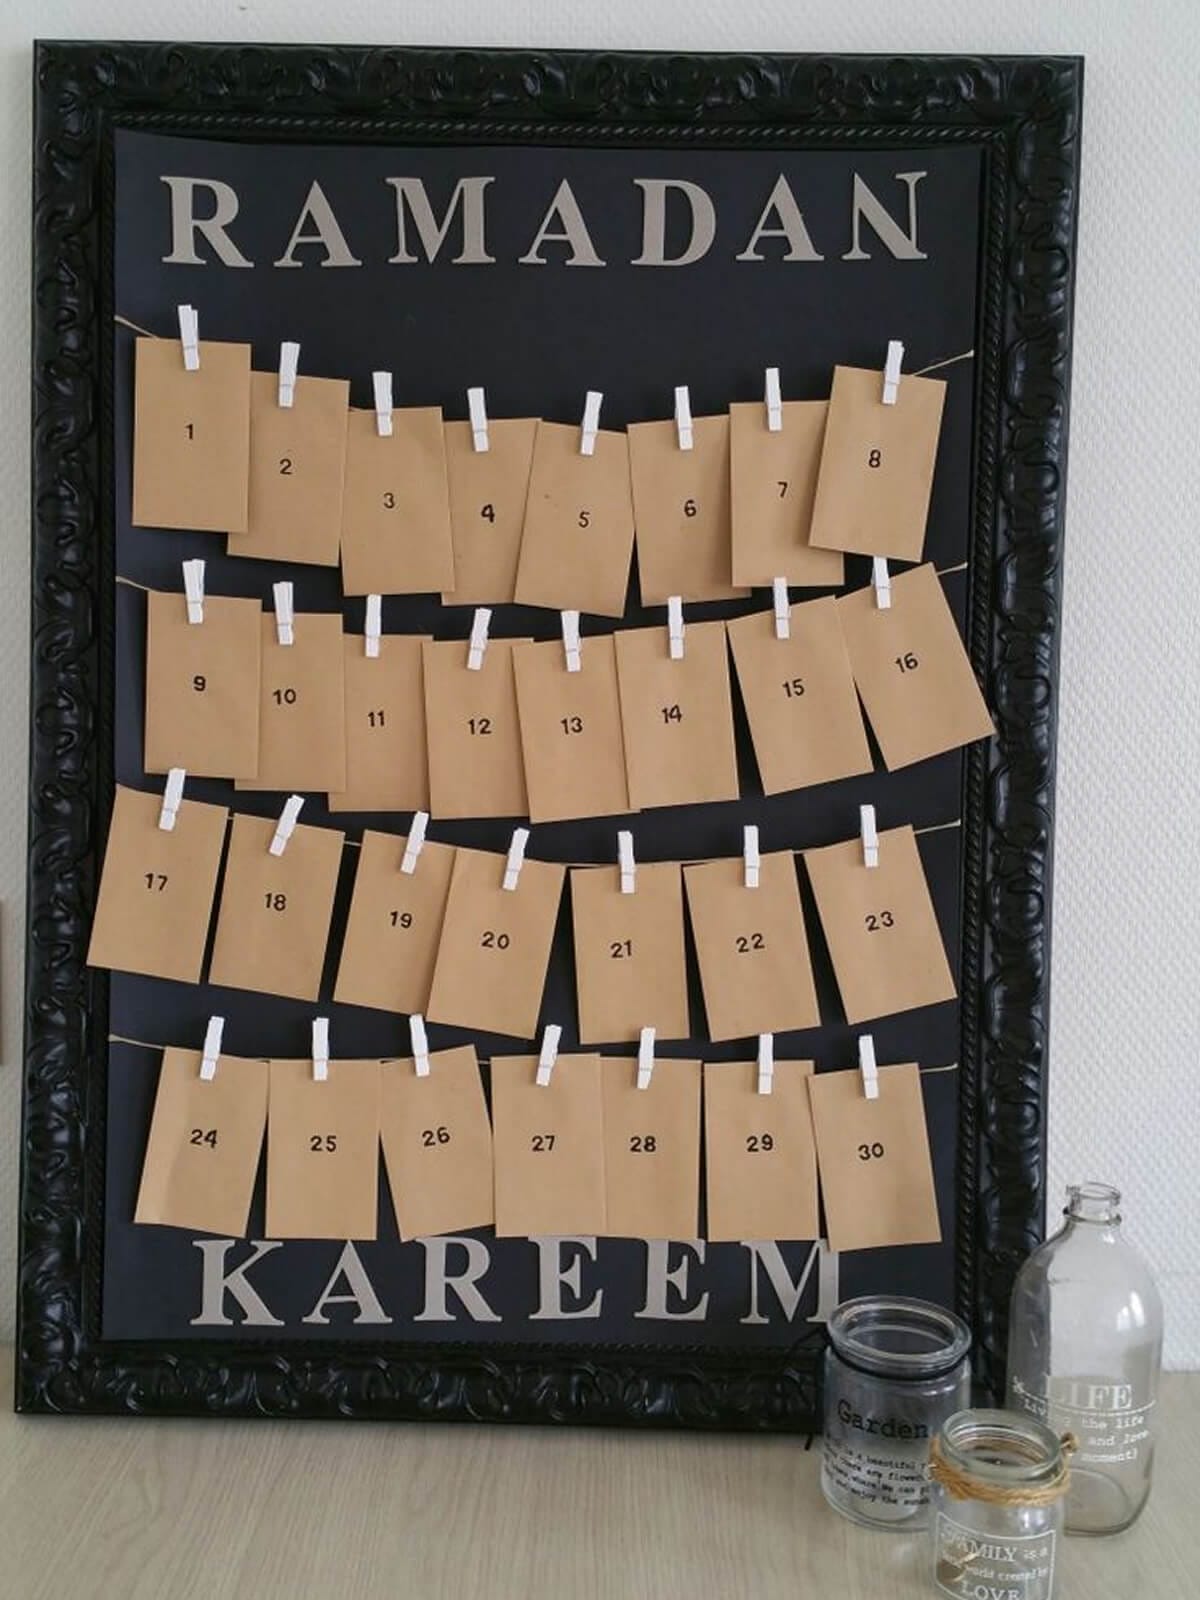 RAMADAN
1 2 3 4 5 6 7 8
9 10 11 12 13 14 15 16
17 18 19 20 21 22 23
24 25 26 27 28 29 30
KAREEM
Garden
is a beautiful
there are flowers
where We can
and enjoy the
LIFE
the life
and love
moment}
FAMILY is a
world created by
LOVE